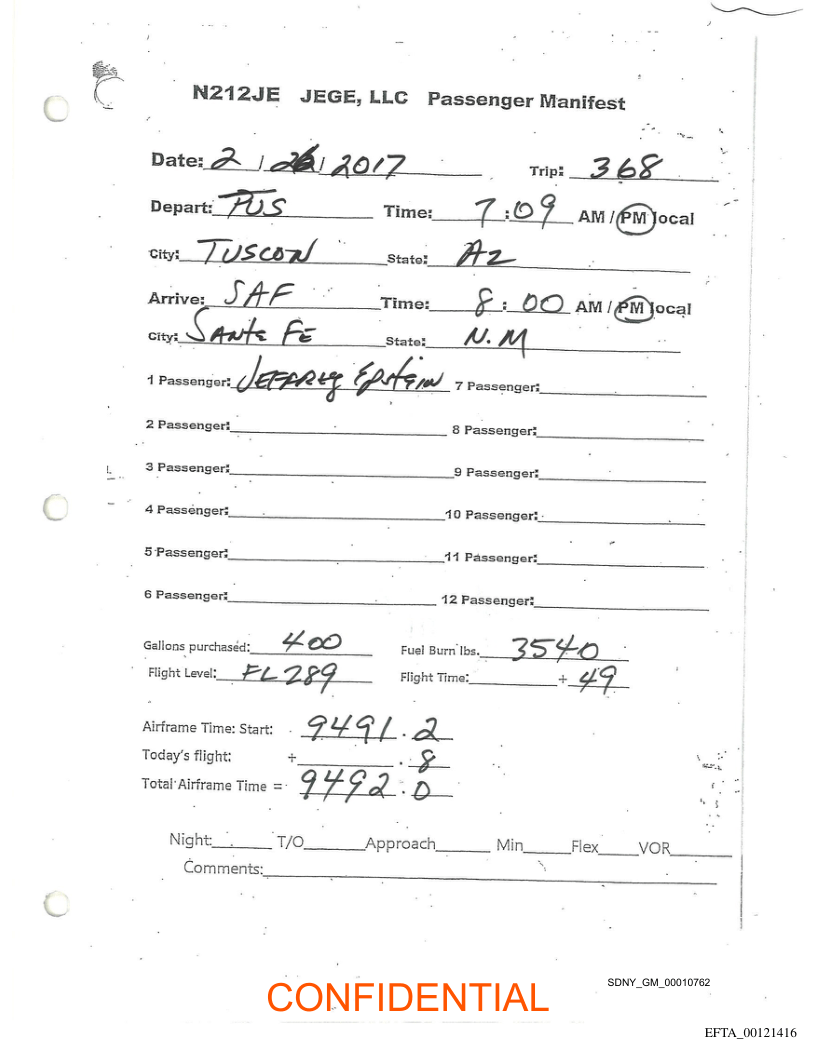 N212JE JEGE, LLC Passenger Manifest
Date: 2 / 26 / 2017 Trip: 368
Depart: TUS Time: 7:09 AM / PM local
City: TUSCON State: AZ
Arrive: SAF Time: 8:00 AM / PM local
City: SANTE FE State: N.M
1 Passenger: JEFFREY EPSTEIN 7 Passenger:
2 Passenger: 8 Passenger:
3 Passenger: 9 Passenger:
4 Passenger: 10 Passenger:
5 Passenger: 11 Passenger:
6 Passenger: 12 Passenger:
Gallons purchased: 400 Fuel Burn lbs. 3540
Flight Level: FL 289 Flight Time: + 49
Airframe Time: Start: 9491.2
Today's flight: + . 8
Total Airframe Time = 9492.0
Night: T/O Approach Min Flex VOR
Comments:
CONFIDENTIAL
SDNY_GM_00010762
EFTA_00121416